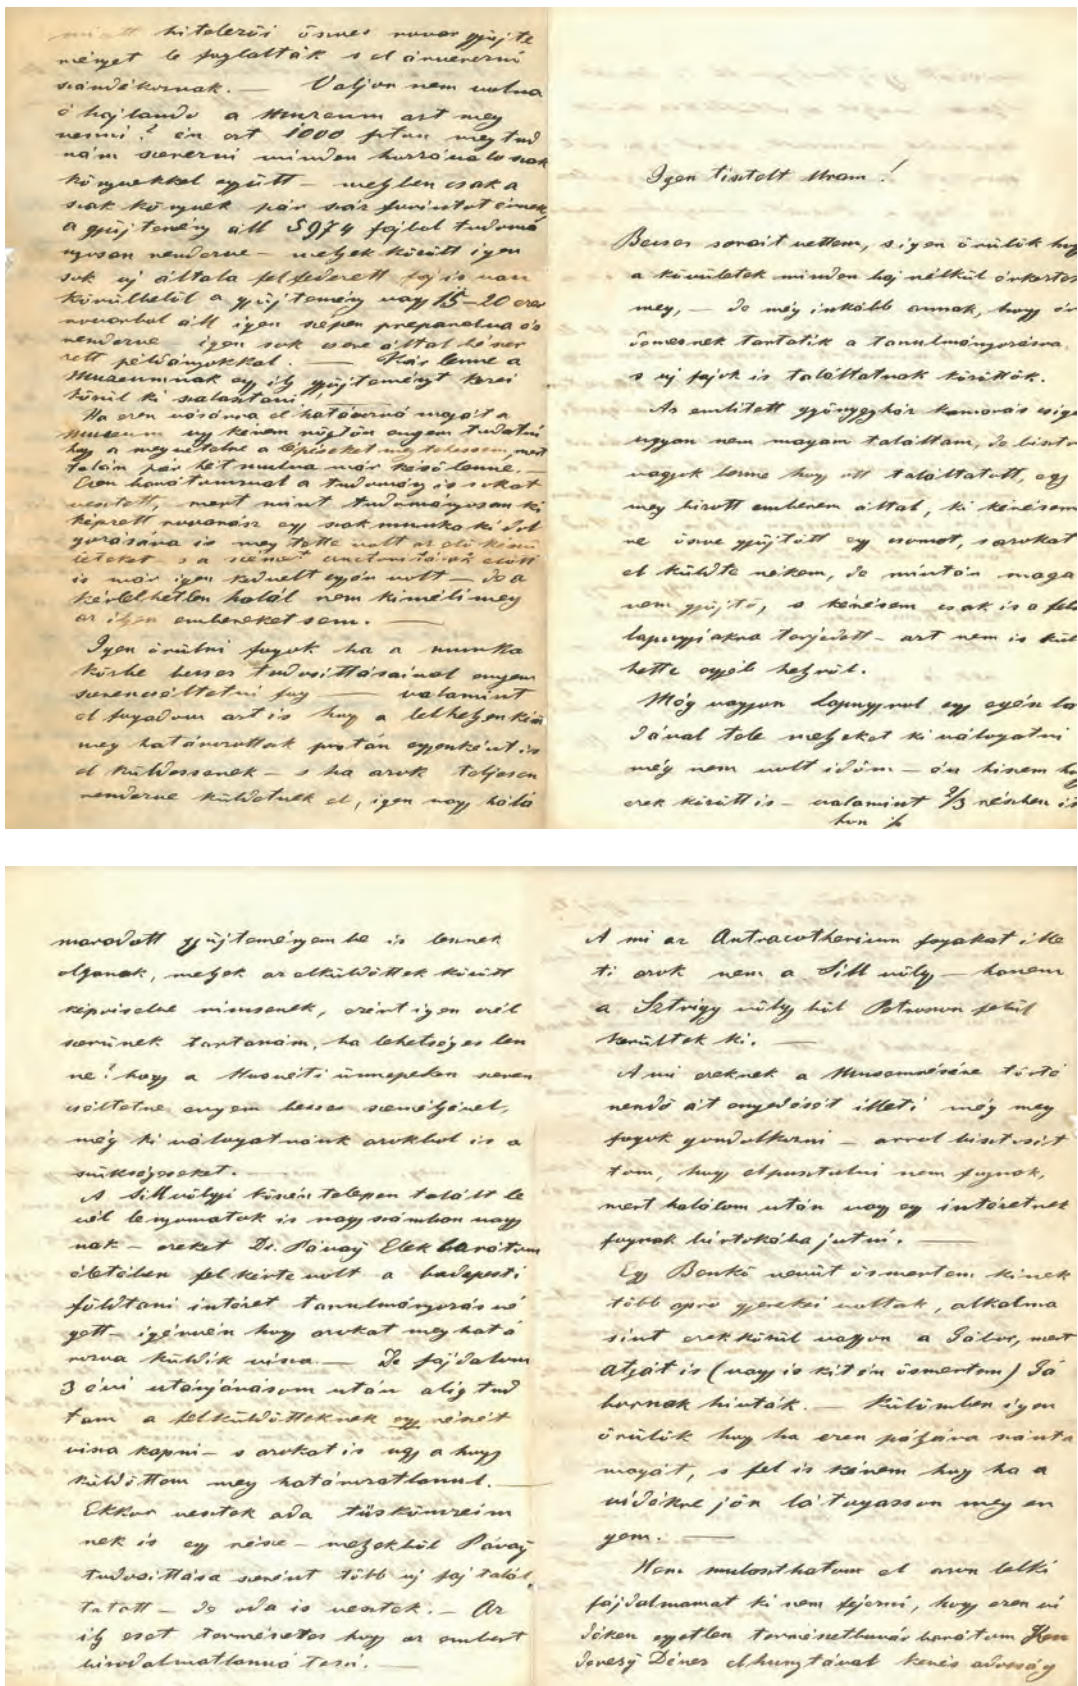 miatt hitelezői össves rovar gyüjte
ményet le foglalták s el árverezni
szándékoznak. — Valjon nem volna
é hajlando a Muzeum azt meg
venni? én azt 1000 ftan meg tud
nám szerezni minden hozzávaló szak
könyvekkel együtt — melyben csak a
szak könyvek pár száz forintot érnek,
a gyüjtemény áll 5974 fajbol tudomá
nyosan rendezve — melyek között igen
sok uj általa felfedezett faj is van
körülbelöl a gyüjtemény vagy 15–20 ezer
rovarbol áll igen szépen preparalva és
rendezve — igen sok csere által bészer
zett példányokkal. — Kár lenne a
Muzeumnak egy ily gyüjteményt kezei
közül ki szalasztani,
Ha ezen vásárra el határozná magát a
Museum ugy kérem rögtön engem tudatni
hogy a megvételre a lépéseket meg tehessem, mert
talán pár hét mulva már késő lenne. —
Ezen barátomnal a tudomány is sokat
vesztett, mert mint tudományosan ki
képzett rovarász egy szak munka ki dol
gozására is meg tette volt az elö készü
leteket s a német autoritások elött
is már igen kedvelt egyén volt — de a
kérlelhetlen halál nem kiméli meg
az ilyen embereket sem. —
Igen örülni fogok ha a munka
körbe becses tudosittásaival engem
szerencséltetni fog — valamint
el fogadom azt is hogy a lelhelyen kön
meg határozottak postán egyenként is
el küldessenek — s ha azok teljesen
rendezve küldetnek el, igen nagy hálá
Igen tisztelt Uram!
Becses sorait vettem, s igen örülök hogy
a kövületek minden baj nélkül érkeztek
meg, — de még inkább annak, hogy ér
demesnek tartatik a tanulmányozásra
s uj fajok is találtatnak közöttök.
Az emlitett gyöngyház kamarás csiga
ugyan nem magam találtam, de bizto
vagyok benne hogy ott találtatott, egy
meg bizott emberem által, ki kérésem
re össve gyüjtött egy csomot, s azokat
el küldte nékem, de miután maga
nem gyüjtő, s kérésem csak is a felső
lapugyiakra terjedett — azt nem is kül
hette egyéb helyröl.
Még vagyon Lapugyrol egy egész lá
dával tele melyeket ki válogatni
még nem volt időm — én hiszem hogy
ezek között is — valamint 2/3 részben is
hon %
maradott gyüjteményembe is lennek
olyanok, melyek az elküldöttek között
képviselve nincsenek, ezért igen czél
szerünek tartanám, ha lehetséges len
ne! hogy a Husvéti ünnepeken szeren
cséltetne engem becses személyével,
még ki válogatnánk azokbol is a
szükségeseket. —
A Sillvölgyi köszén telepen talált le
vél lenyomatok is nagy számban vagy
nak — ezeket Dr. Pávaÿ Elek barátom
életében fel kérte volt a budapesti
földtani intézet tanulmányozás vé
gett — igérvén hogy azokat meg hatá
rozva küldik vissza. — De fájdalom
3 évi utánjárásom után alig tud
tam a felküldötteknek egy részét
vissza kapni — s azokat is ugy a hogy
küldöttem meg határozatlanul. —
Ekkor vesztek oda tüskönczeim
nek is egy része — melyekböl Pávaÿ
tudosittása szerént több uj faj talál
tatott — de oda is vesztek. — Az
ily eset természetes hogy az embert
bizodalmatlanná teszi. —
A mi az Antracotherium fogakat ille
ti azok nem a Sill völgy — hanem
a Sztrigy völgy böl Petroson felül
kerültek ki. —
A mi ezeknek a Museum részére törté
nendő át engedését illeti még meg
fogok gondolkozni — arrol biztosit
tom, hogy elpusztulni nem fognak,
mert halálom után vagy egy intézetnek
fognak birtokába jutni. —
Egy Benkö nevüt ösmertem kinek
több apro gyerekei voltak, alkalma
sint ezek közül vagyon a Gábor, mert
atyját is (vagy is kit én ösmertem) Gá
bornak hivták. — Külömben igen
örülök hogy ha ezen pályára szánta
magát, s fel is kérem hogy ha a
vidékre jön látogasson meg en
gem. —
Nem mulaszthatom el azon lelki
fájdalmamat ki nem fejezni, hogy ezen vi
déken egyetlen természetbuvár barátom Ken
deresÿ Dénes elhunytával kevés adosság